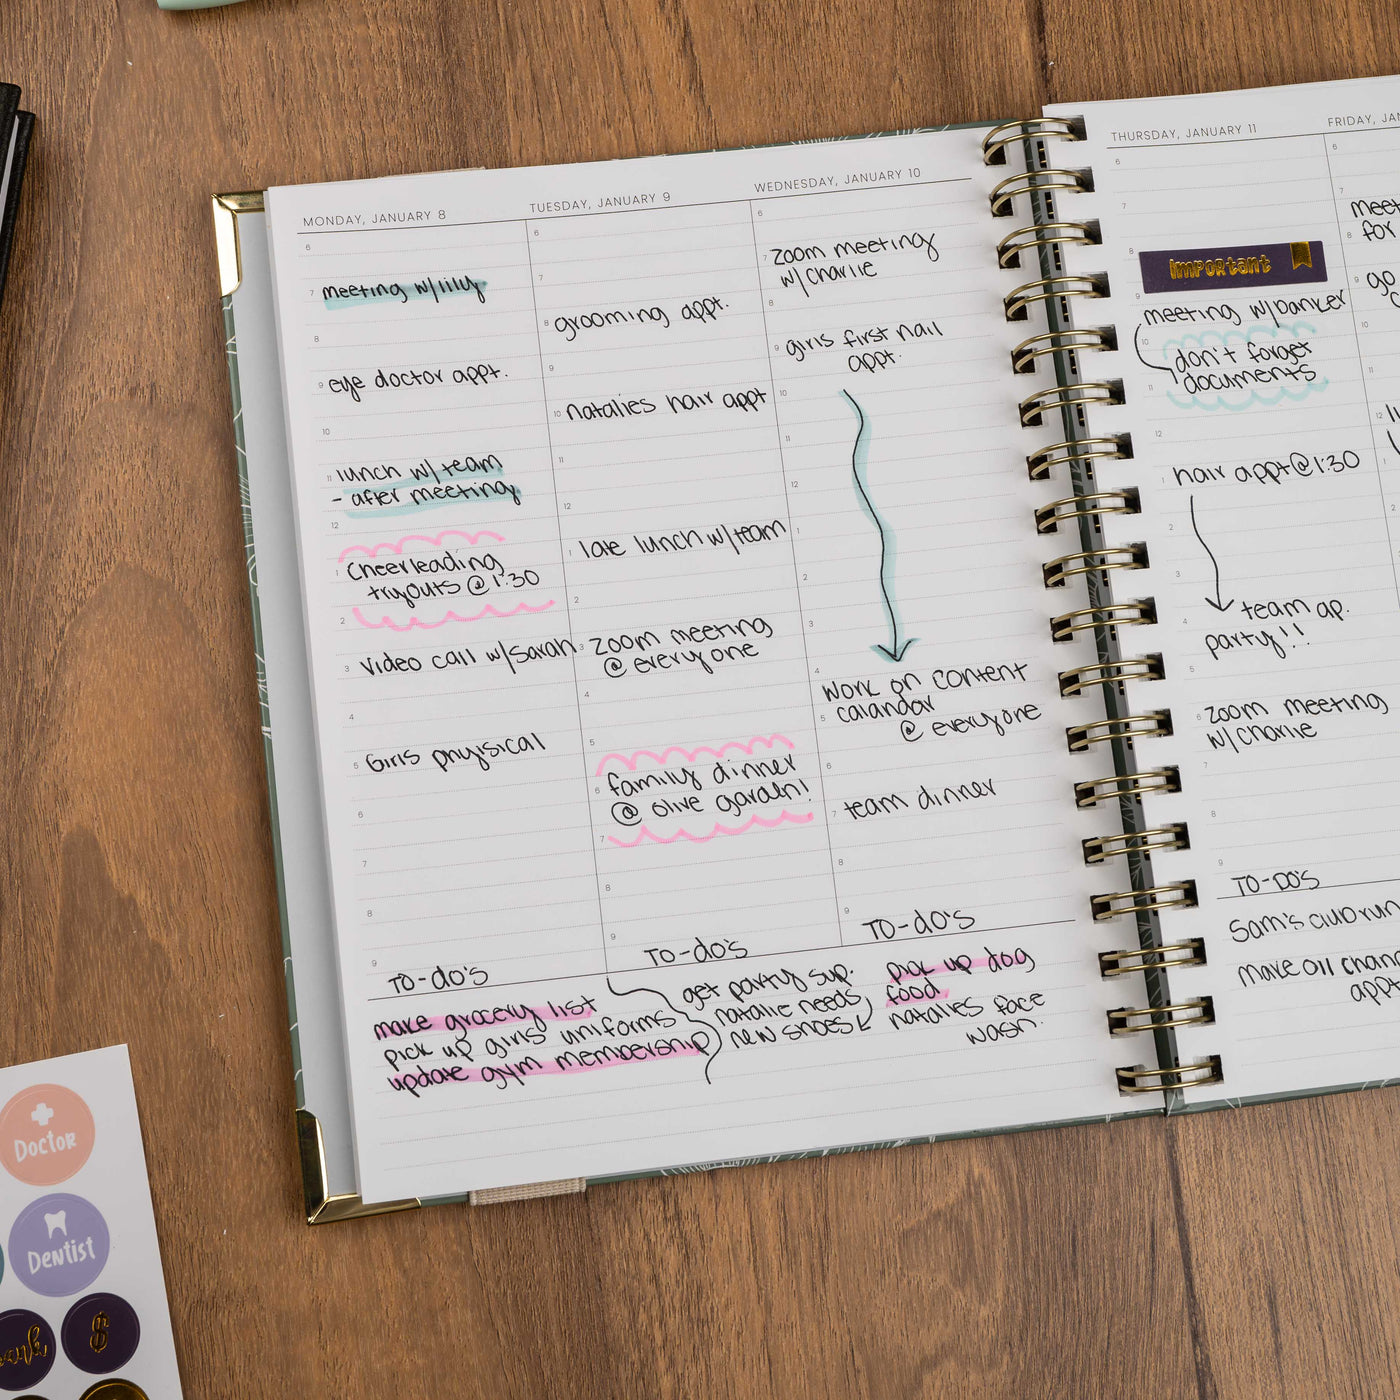 MONDAY, JANUARY 8
6
7 meeting w/lily
8
9 eye doctor appt.
10
11 lunch w/ team
- after meeting
12
Cheerleading
1 tryouts @ 1:30
2
3 video call w/Sarah
4
5 Girls phyisical
6
7
8
9
To-do's
make grocery list
pick up girls uniforms
update gym membership
TUESDAY, JANUARY 9
6
7
8 grooming appt.
9
10 natalies hair appt
11
12
1 late lunch w/team
2
3 Zoom meeting
@ everyone
4
5
family dinner
6 @ olive garden!
7
8
9
To-do's
get party sup.
natalie needs
new shoes
WEDNESDAY, JANUARY 10
6
7 zoom meeting
w/ Charlie
8
9 girls first nail
appt.
10
11
12
1
2
3
4
work on content
5 calandar
@ everyone
6
7 team dinner
8
9
To-do's
pick up dog
food
natalies face
wash.
THURSDAY, JANUARY 11
6
7
8
Important
9
meeting w/banker
10
don't forget
11 documents
12
1 hair appt@1:30
2
3
4 team ap.
party!!
5
6 zoom meeting
w/Charlie
7
8
9
To-Do's
Sam's club run
make oil
appt
FRIDAY,
6
7
8 for
9 go
10
11
12
1
2
Doctor
Dentist
$